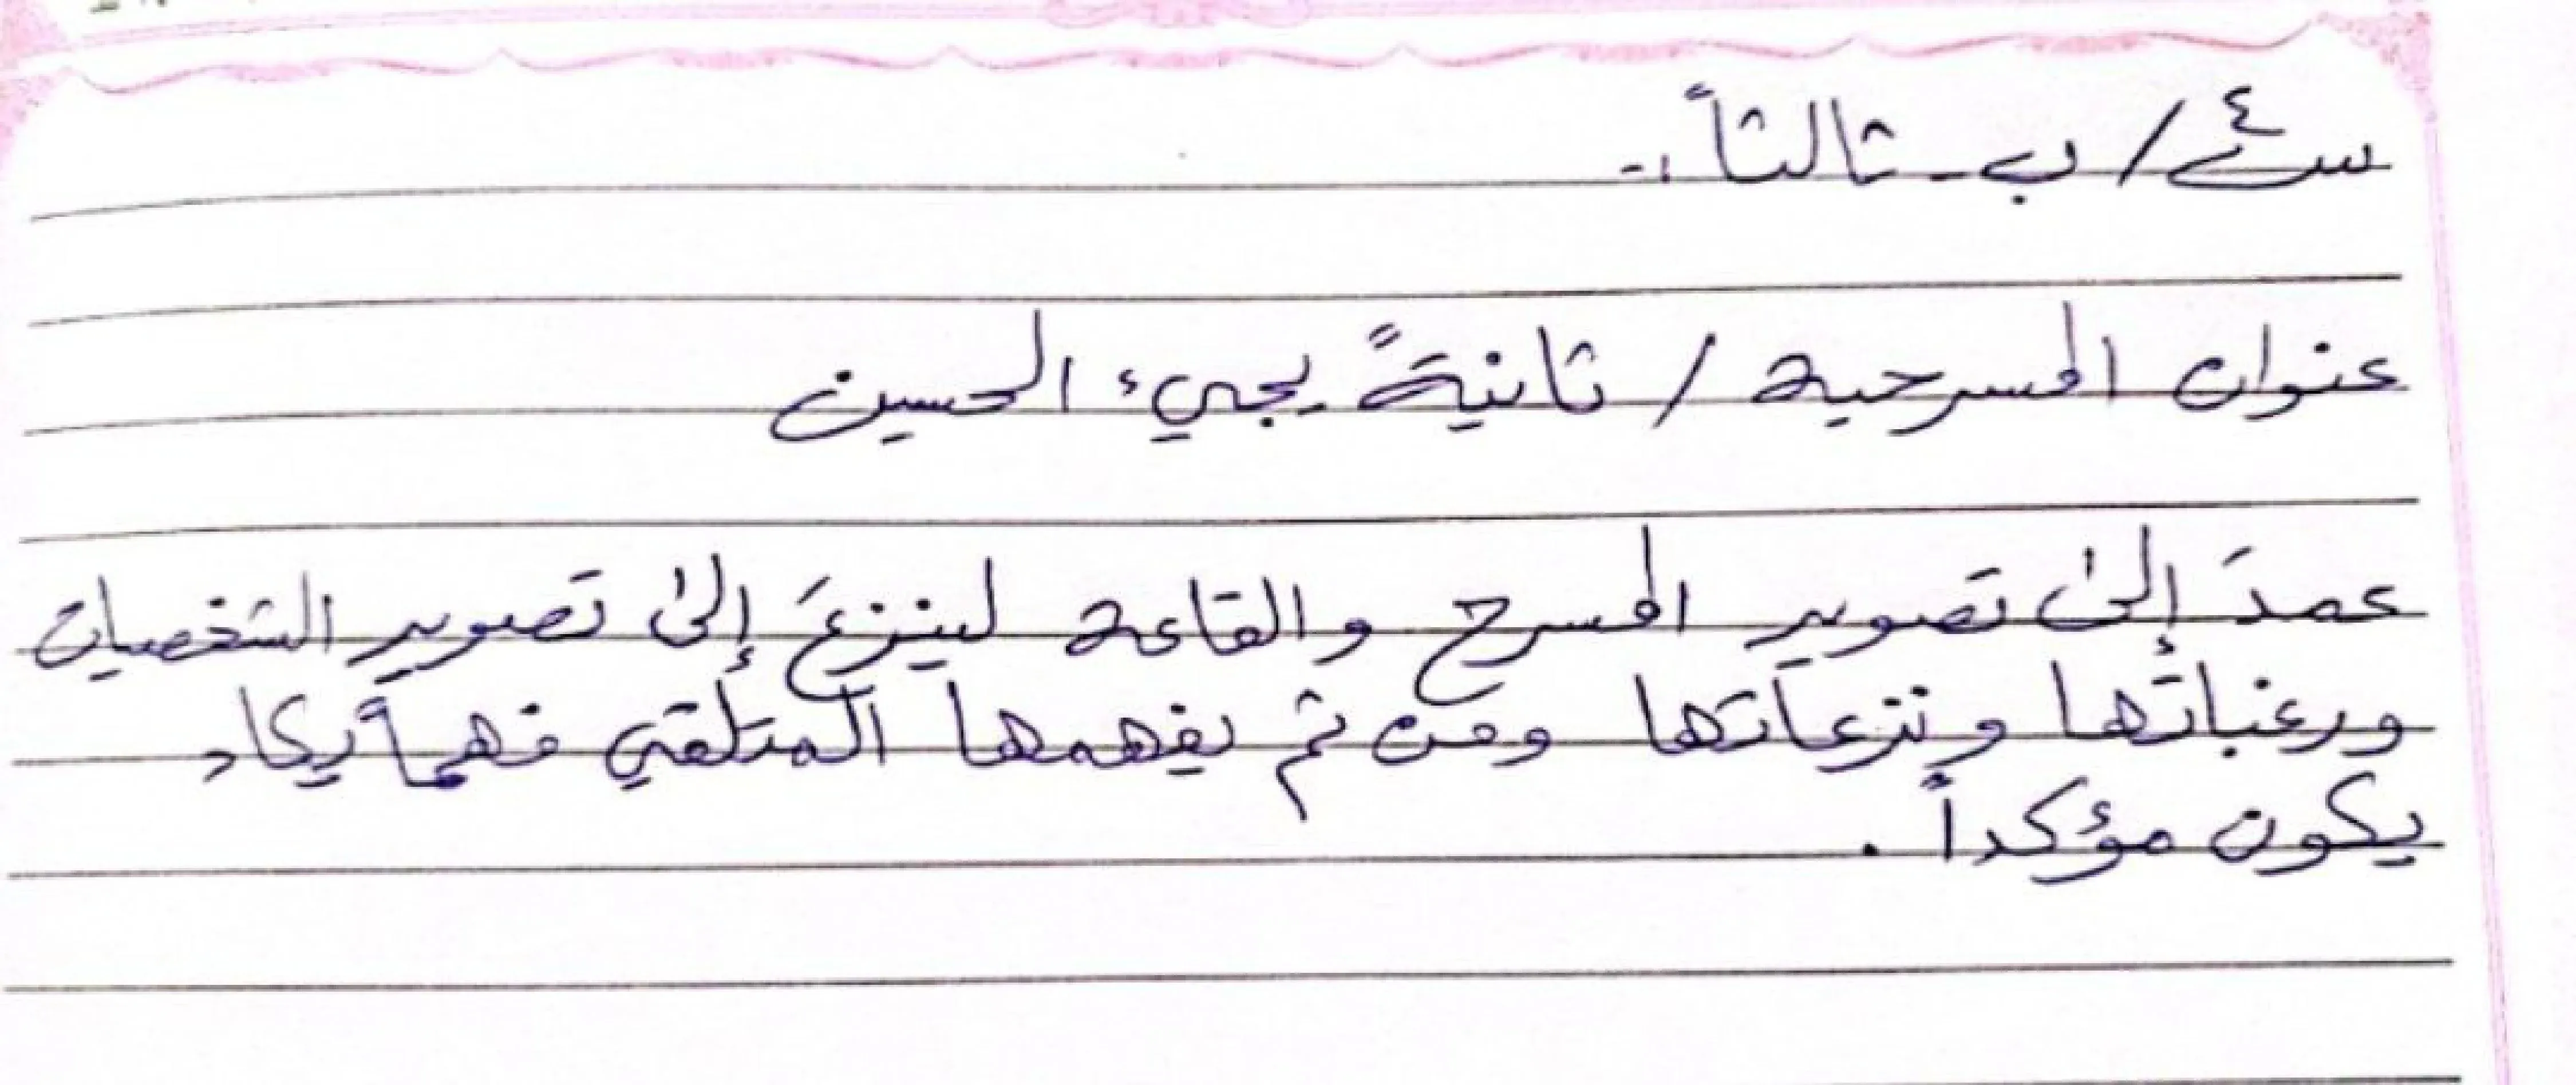 س٤/ ب- ثالثاً :-
عنوان المسرحية / ثانيةً يجيء الحسين
عمدَ إلى تصوير المسرح والقاعة لينزعَ إلى تصوير الشخصيات
ورغباتها ونزعاتها ومن ثم يفهمها المتلقي فهماً يكاد
يكون مؤكداً .